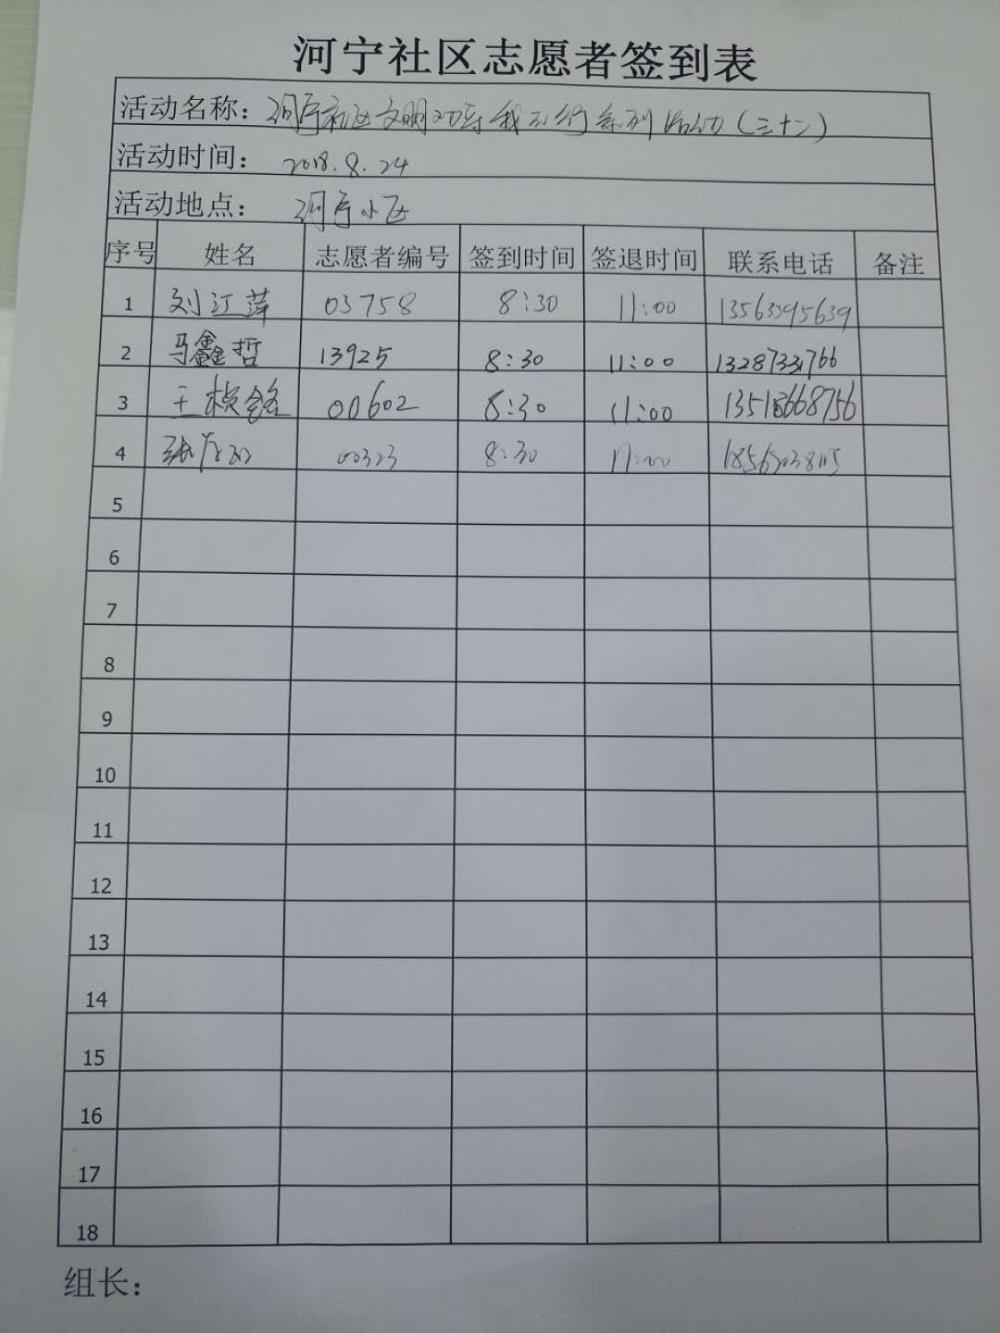 河宁社区志愿者签到表
活动名称：河宁社区文明劝导我不行系列活动（三十二）
活动时间：2018.8.24
活动地点：河宁小区
序号 姓名 志愿者编号 签到时间 签退时间 联系电话 备注
1 刘江萍 03758 8:30 11:00 13563395639
2 马鑫哲 13925 8:30 11:00 13287331766
3 王 00602 8:30 11:00 13518668756
4 张 00323 8:30 11:00
5
6
7
8
9
10
11
12
13
14
15
16
17
18
组长：